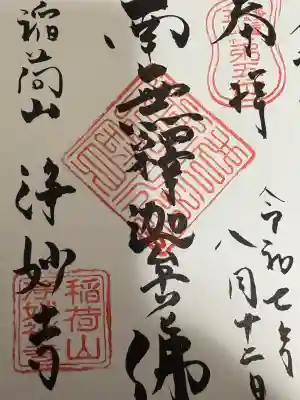 奉拝
令和七年
八月十二日
南無釋迦牟尼佛
稲荷山
浄妙寺
稲荷山
浄妙寺